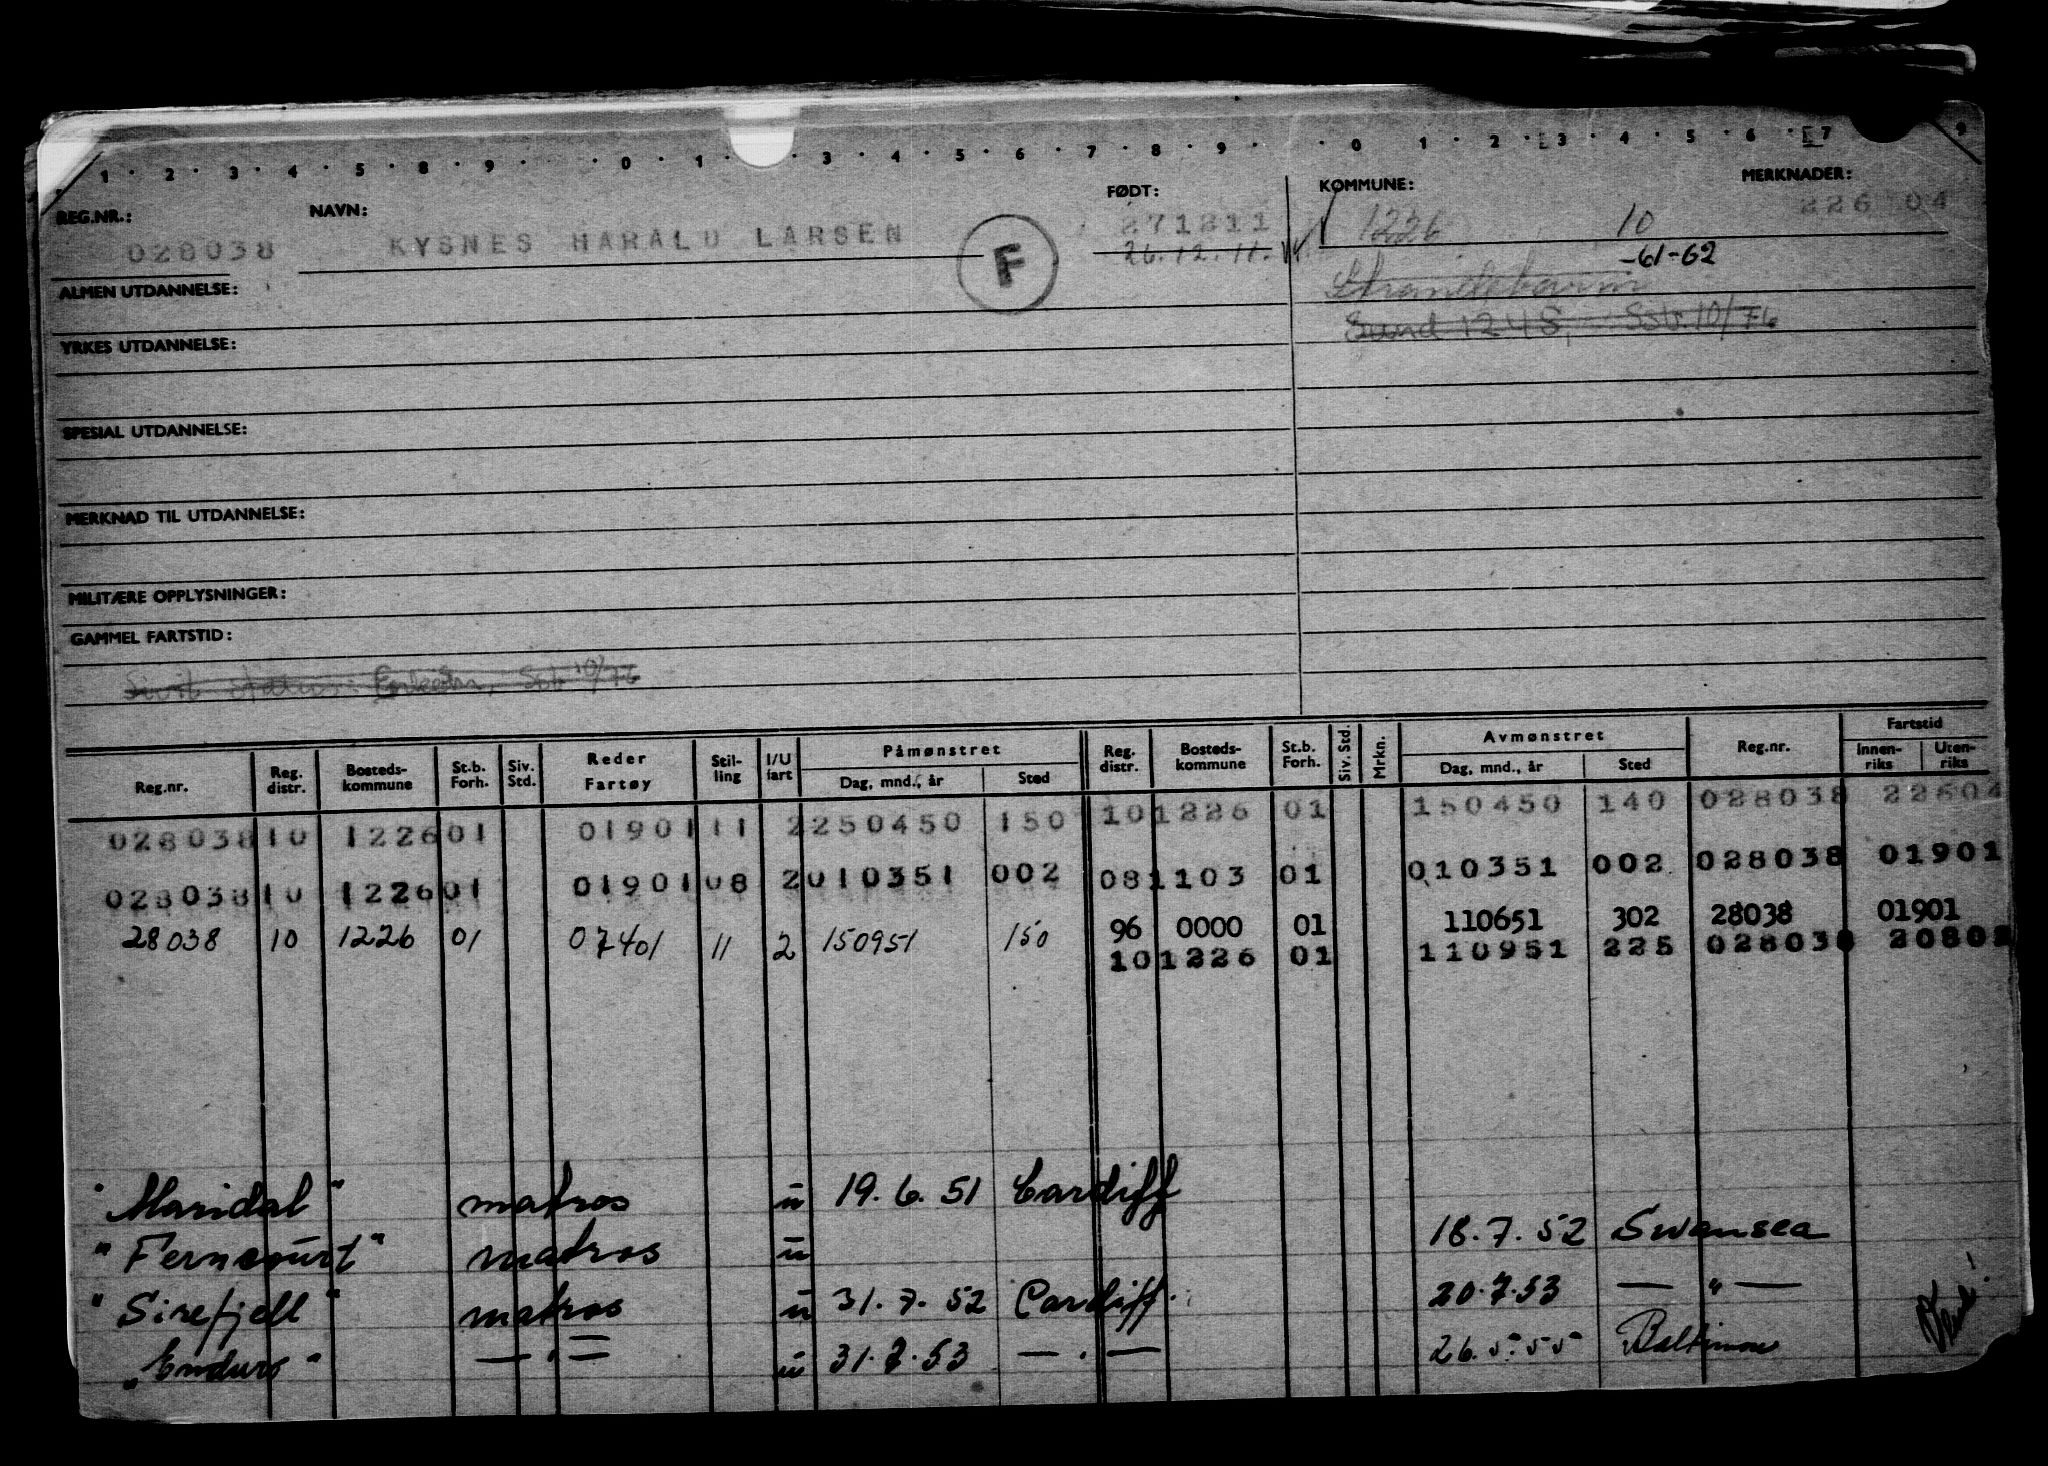 1 · 2 · 3 · 4 · 5 · 8 · 9 · · 0 · 1 · · 3 · 4 · 5 · 6 · 7 · 8 · 9 · · 0 1 · 2 · 3 · 4 · 5 · 6 · 7 9
REG.NR.: NAVN: FØDT: KOMMUNE: MERKNADER:
028038 KYSNES HARALD LARSEN F 271211 1226 10 226 04
26.12.11. -61-62
ALMEN UTDANNELSE: Strandebarm
YRKES UTDANNELSE: Sund 1245, Sst. 10/76
SPESIAL UTDANNELSE:
MERKNAD TIL UTDANNELSE:
MILITÆRE OPPLYSNINGER:
GAMMEL FARTSTID:
Sivil status: 10/76
Reg.nr. Reg. distr. Bosteds- kommune St.b. Forh. Siv. Std. Reder Fartøy Stil- ling I/U fart Påmønstret Dag, mnd., år Sted Reg. distr. Bosteds- kommune St.b. Forh. Siv. Std. Mrkn. Avmønstret Dag, mnd., år Sted Reg.nr. Fartstid Innen- riks Uten- riks
028038 10 1226 01 01901 11 2 250450 150 10 1226 01 150450 140 028038 22604
028038 10 1226 01 01901 08 2 010351 002 08 1103 01 010351 002 028038 01901
28038 10 1226 01 07401 11 2 150951 150 96 0000 01 110651 302 28038 01901
10 1226 01 110951 225 028038 2080
"Maridal" matros u 19.6.51 Cardiff
"Ferncourt" matros u 18.7.52 Swansea
"Sirefjell" matros u 31.7.52 Cardiff. 20.7.53 — " —
"Enduro" — " — u 31.7.53 — " — 26.5.55 Baltimore